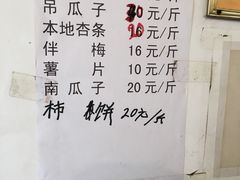 吊瓜子 30元/斤
本地杏条 16元/斤
伴梅 16元/斤
薯片 10元/斤
南瓜子 20元/斤
柿 饼 20元/斤